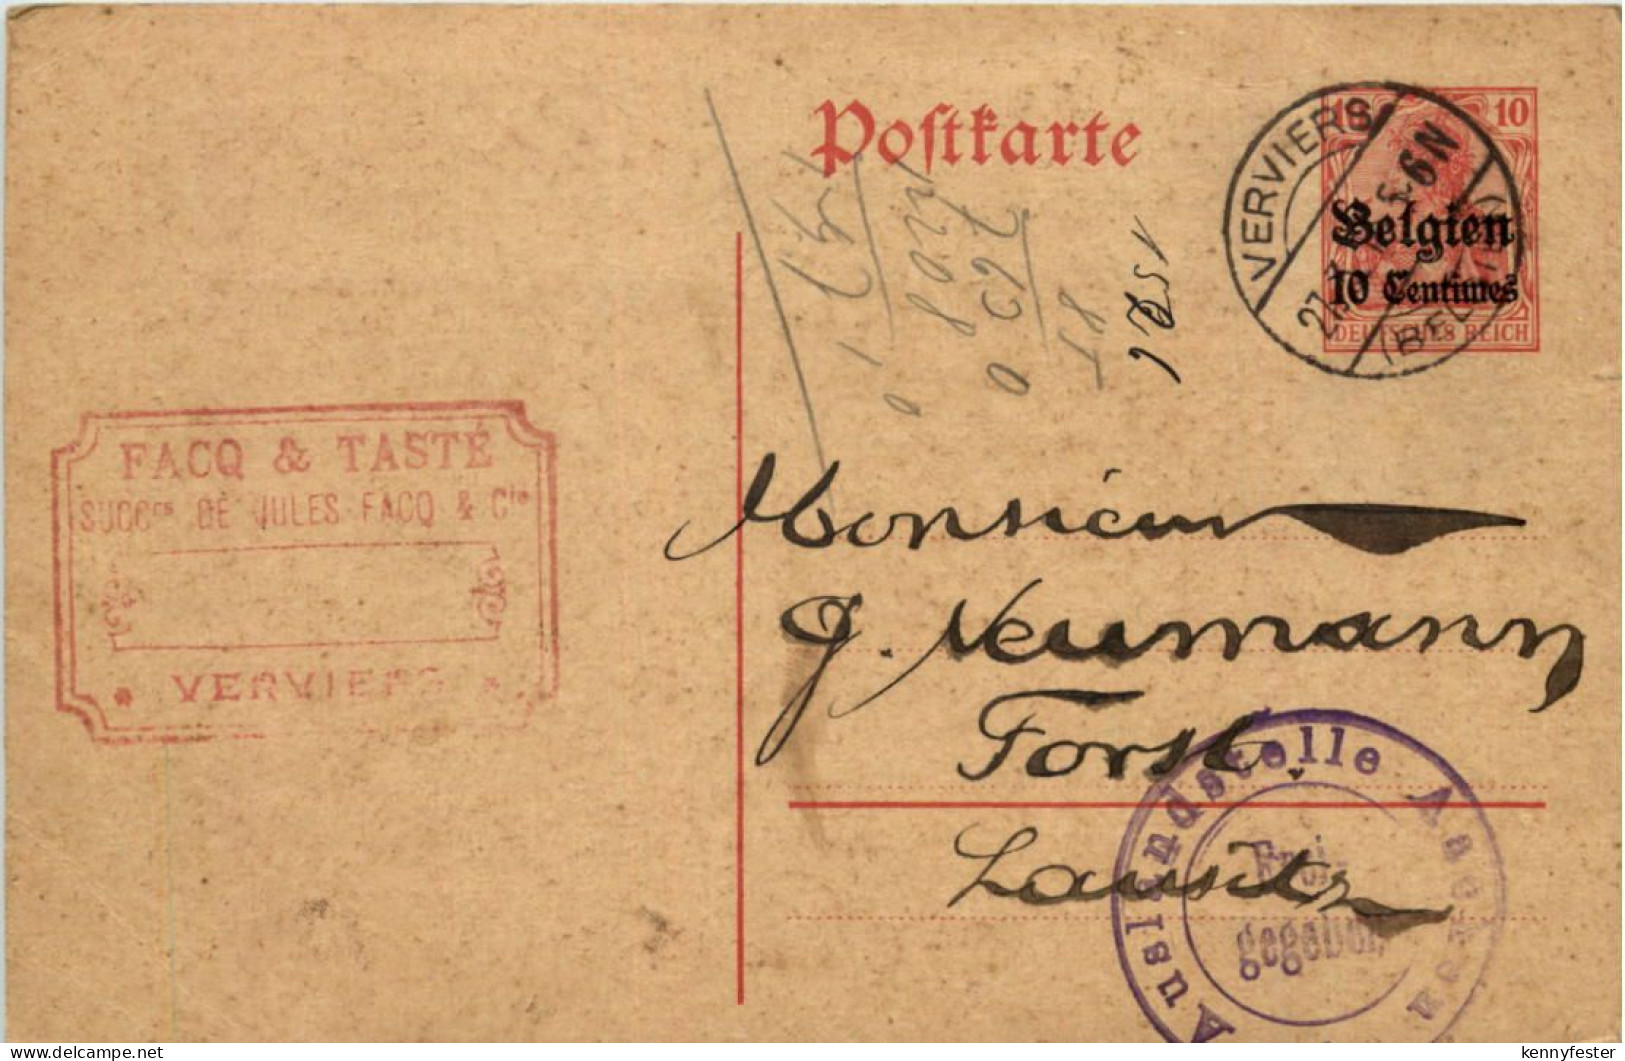 Postkarte
10 10
Belgien
10 Centimes
DEUTSCHES REICH
VERVIERS
6N
FACQ & TASTÉ
SUCCrs DE JULES FACQ & Cie
VERVIERS
Monsieur
J. Neumann
Forst.
Lausitz
Auslandstelle Aachen
Frei-
gegeben
delcampe.net
kennyfester